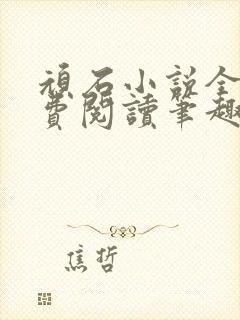 頑石小說全
費閱讀筆趣
焦哲